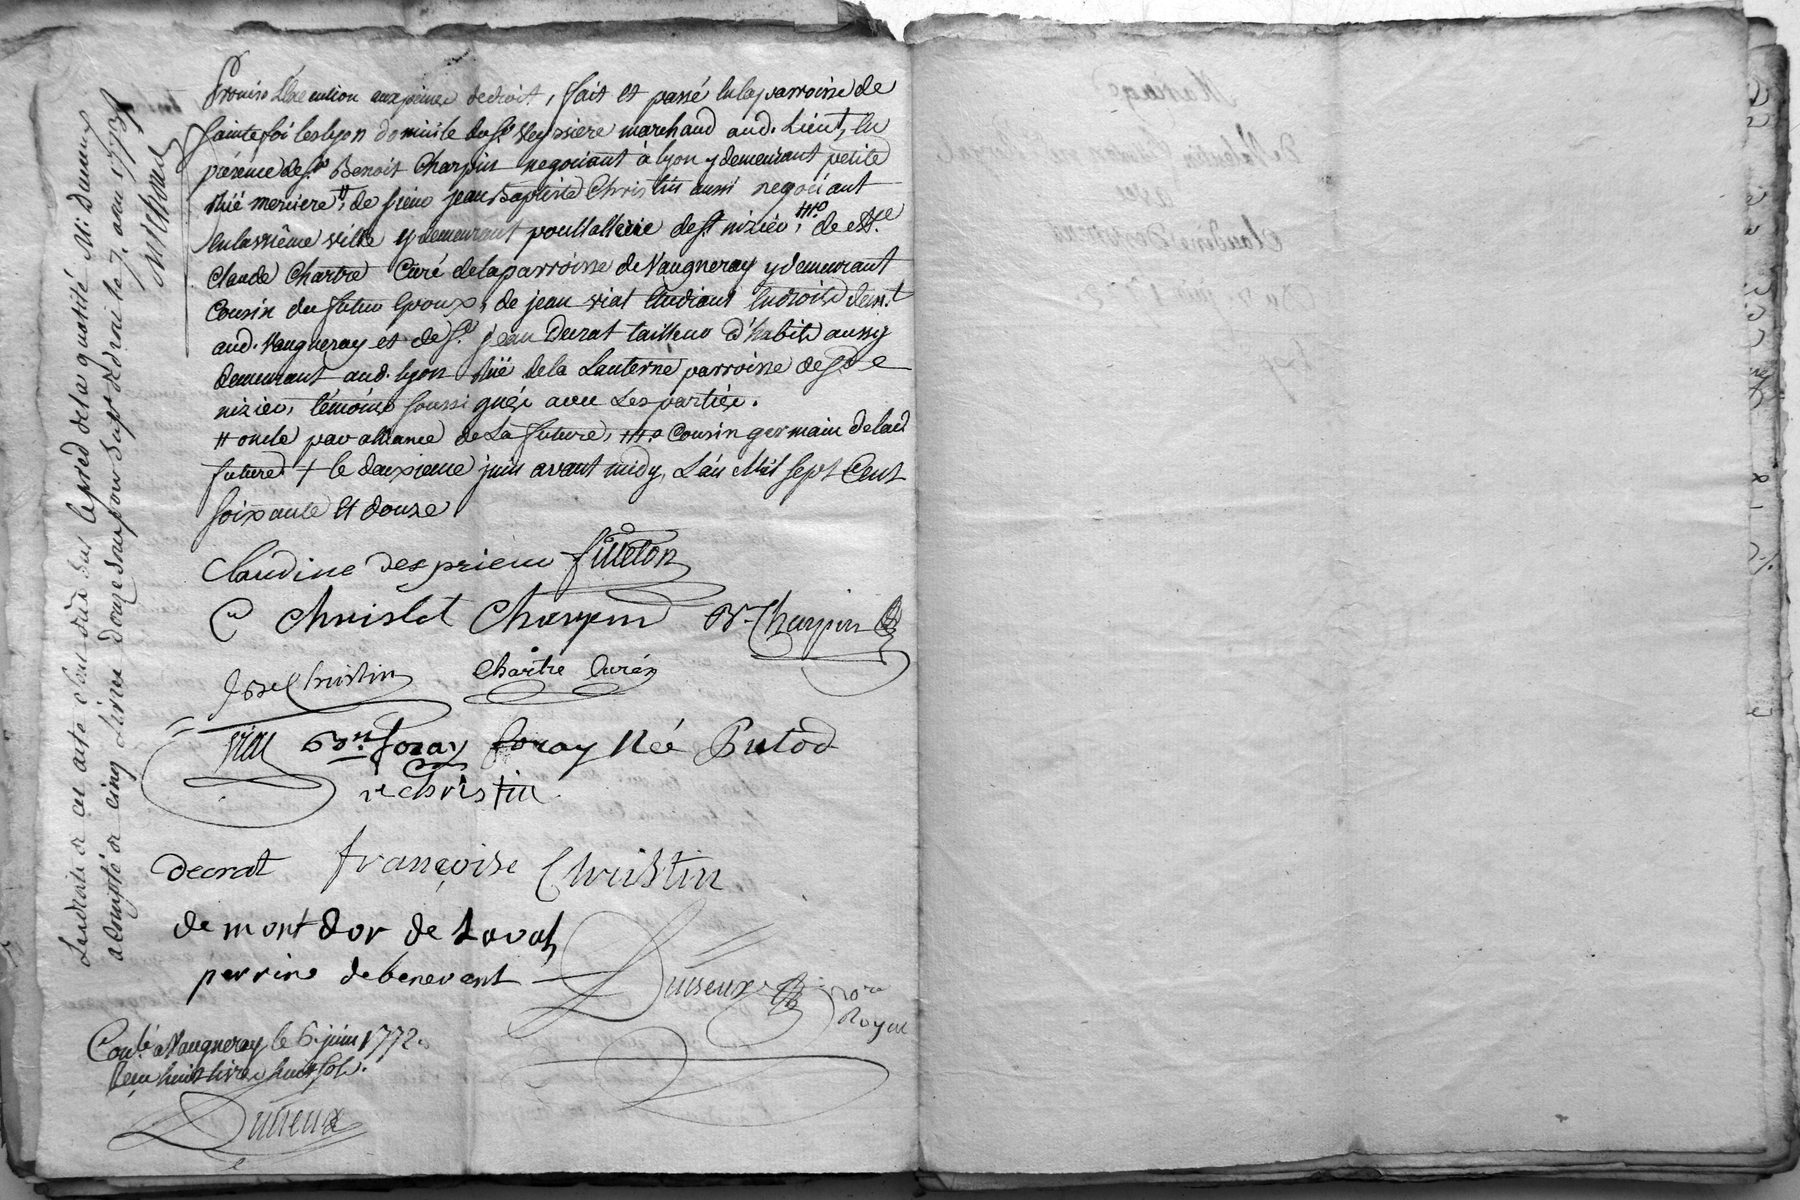 promis L'execution aux peines de droit, fait et passé en la parroisse de
sainte foi les lyon domicile du Sr. Veyssiere marchand aud. Lieu, en
présence de Sr. Benoit Charpin negociant à lyon y demeurant petite
ruë merciere #, de sieur jean Baptiste Christin aussi negociant
en la même ville y demeurant poullallerie de St nizier, ##° de Mre
Claude Chartre Curé de la parroisse de Vaugneray y demeurant
Cousin du futur Epoux, de jean vial Etudiant en droit dem.t
aud. Vaugneray et de Sr. jean Decrat tailleur d'habits aussy
demeurant aud. lyon ruë de la Lanterne parroisse de St
nizier, témoins soussignés avec Les parties.
# oncle par alliance de La future, ##° Cousin germain de lad
future + le deuxieme juin avant midy, L'an Mil sept Cent
soixante et douze
Claudine desprieux filleton
C Christot Charpin Bt Charpin
J Bte Christin Chartre Curé
Vial foray foray Née Putod
Christin
decrat françoise Christin
de mont dor de Laval
perrine de benevent
Duvieux no.re
Royal
Con.lé à Vaugneray le 6. juin 1772.
Reçu huit livres huit sols.
Duvieux
Les droits de cet acte étant dus sur le pied de la qualité
a compté de cinq Livres douze sous pour Sup.t de droit le 7. aout 1773
Mariage
De Valentin
avec
Claudine Desprieux
Du 2. juin 1772